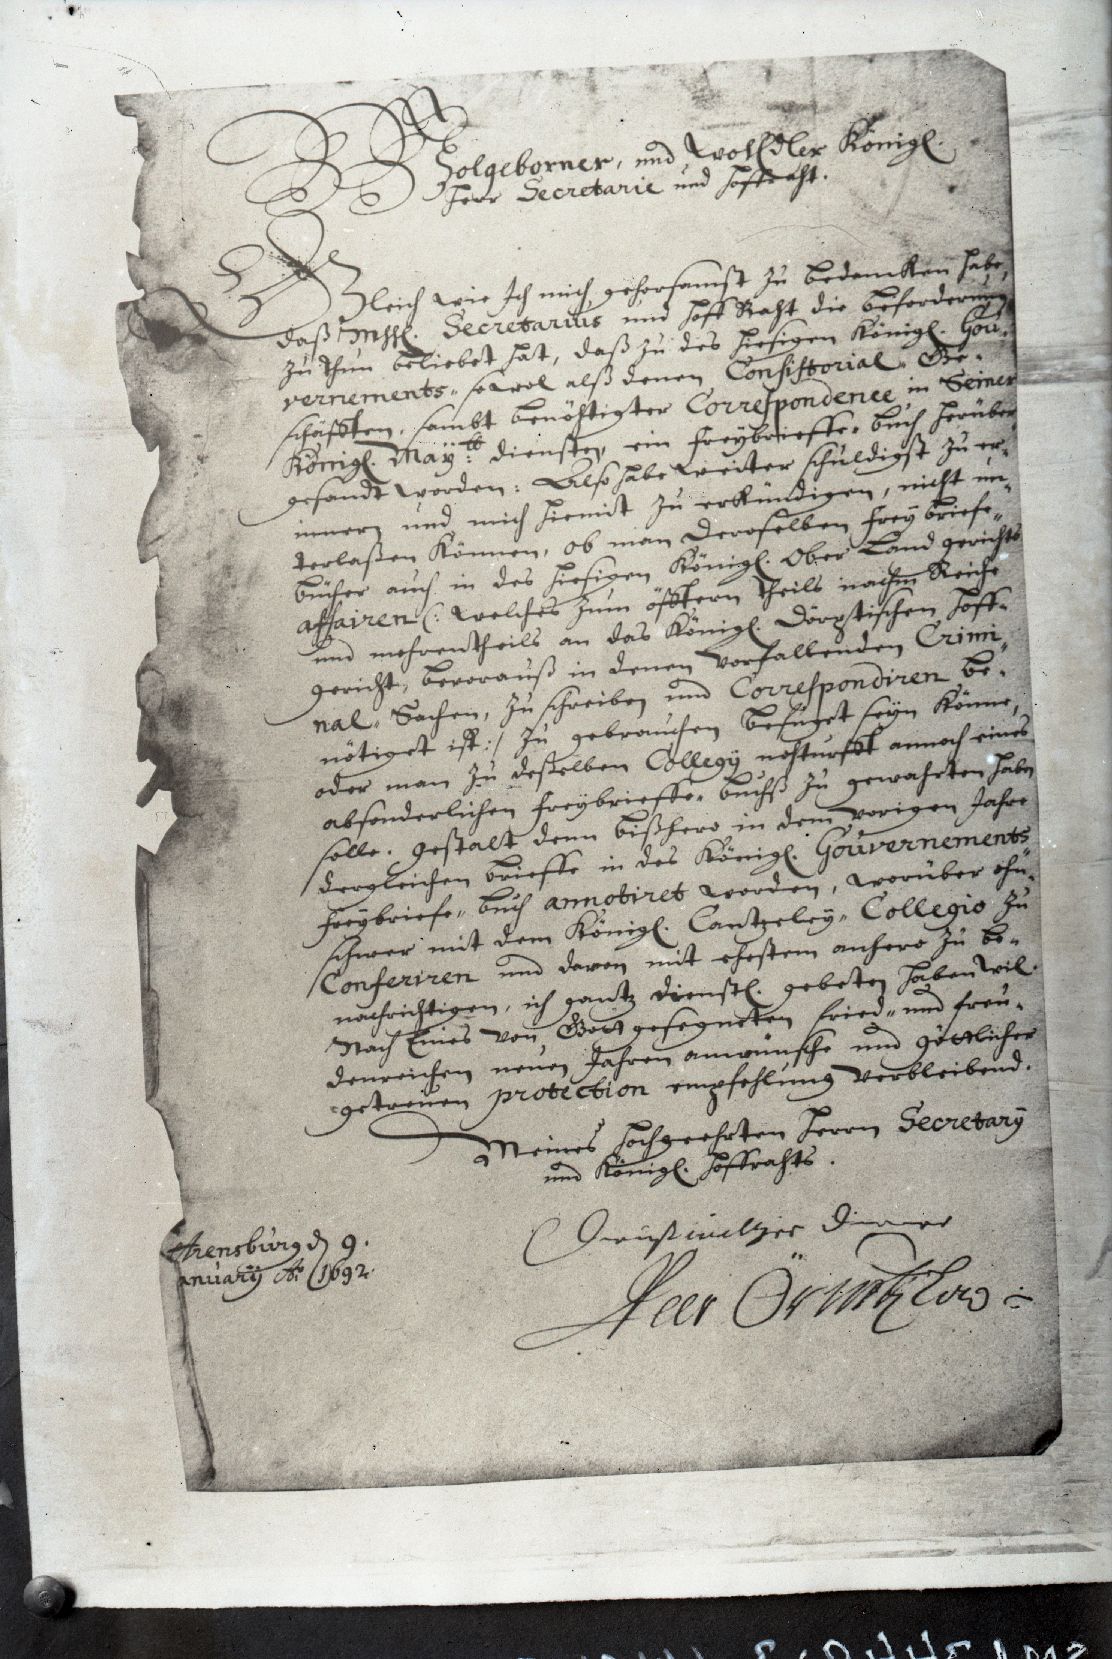 Wolgeborner, und WohlEdler Königl.
Herr Secretarie und Hoffraht.
Gleich wie Ich mich gehorsamst zu bedancken habe,
daß MhH. Secretarius und Hoff Raht die beforderung
zu thun beliebet hat, daß zu des hiesigen Königl. Gou-
vernements- sowol alß denen Consistorial- Ge-
schäfften, sambt benöhtigter Correspondence in Seiner
Königl. Mäy:tt diensten, ein freybrieffe- buch herüber
gesandt worden: Also habe weiter schuldigst zu er-
innern und mich hiemit zu erkündigen, nicht un-
terlaßen können, ob man deroselben freybriefe-
bücher auch in des hiesigen Königl. Ober Land gerichts
affairen (: welches zum öfftern theils nachm Reiche
und mehrentheils an das Königl. Dörptischen Hoff-
gericht, bevorauß in denen vorfallenden Crimi-
nal- Sachen, zu schreiben und Correspondiren be-
nötiget ist :) zu gebrauchen befüget seyn könne,
oder man zu deßelben Collegij nohturfft annoch eines
absonderlichen freybrieffe- buchß zu gewahrten haben
solle. gestalt denn bißhero in dem vorigen Jahre
dergleichen brieffe in des Königl. Gouvernements
freybriefe- buch annotiret worden, worüber ohn-
schwer mit dem Königl. Cantzeley- Collegio zu
Conferiren und davon mit ehestem anhero zu be-
nachrichtigen, ich gantz dienstl. gebeten haben wil.
Nach Eines von Gott gesegneten fried- und freu-
denreichen neuen Jahren anwünsche und göttlicher
getreuen protection empfehlung verbleibend.
Meines Hochgeehrten Herrn Secretarÿ
und Königl. Hoffrahts.
Arensburg d 9.
anuarÿ Ao 1692.
Dienstwilliger Diener
Peer Örneklow